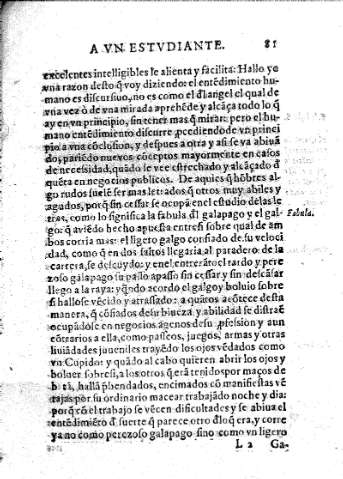 A VN ESTVDIANTE. 81
excelentes intelligibles le alienta y facilita: Hallo yo
vna razon desto q̃ voy diziendo: el entẽdimiento hu-
mano es discursiuo, no es como el d̃l angel el qual de
vna vez ò de vna mirada aprehẽde y alcãça todo lo q̃
ay en vn principio, sin tener mas q̃ mirar: pero el hu-
mano entẽdimiento discurre p̱cediendode vn princi
pio a vna cõclusion, y despues a otra y assi se va abiuã
dó, pariẽdo nueuos cõceptos mayormente en casos
de necessidad, quãdo le vee estrechado y alcãçado d̃
quẽta en negocios publicos. De aqui es q̃ hõbres al-
go rudos suelẽ ser mas letrados q̃ otros muy abiles y
agudos, porq̃ sin cessar se ocupã enel estudio delas le
tras, como lo significa la fabula d̃l galapago y el gal-
go: q̃ auiẽdo hecho apuesta entresi sobre qual de am
bos corria mas: el ligero galgo confiado de su veloci
dad, como q̃ en dos saltos llegaria al paradero de la
carrera, se descuydo: y enel entretãto el tardo y pere-
zoso galapago su passo apasso sin cessar y sin descãsar
llego a la raya: yq̃ndo acordo el galgoy boluio sobre
si hallose vẽcido y atrassado: a quãtos acõtece desta
manera, q̃ cõfiados desu biueza y abilidad se distraẽ
ocupãdose en negocios agenos desu p̱fession y aun
cõtrarios a ella, como passeos, juegos, armas y otras
liuiãdades juueniles trayẽdo los ojos vẽdados como
vn Cupido: y quãdo al cabo quieren abrir los ojos y
boluer sobresi, a los otros q̃ erã tenidos por maços de
batã, hallã p̱bendados, encimados cõ manifiestas vẽ
tajas por su ordinario macear trabajãdo noche y dia:
porq̃ cõ el trabajo se vẽcen dificultades y se abiua el
entẽdimiẽto d̃ suerte q̃ parece otro d̃lo q̃ era, y corre
ya no como perezoso galapago sino como vn ligero
L 2 Ga-
Fabula.